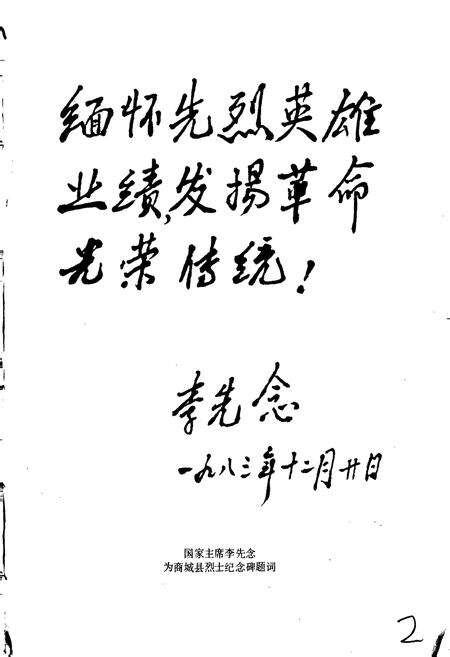 缅怀先烈英雄
业绩,发揚革命
光荣传统!
李先念
一九八三年十二月廿日
国家主席李先念
为商城县烈士纪念碑题词
2